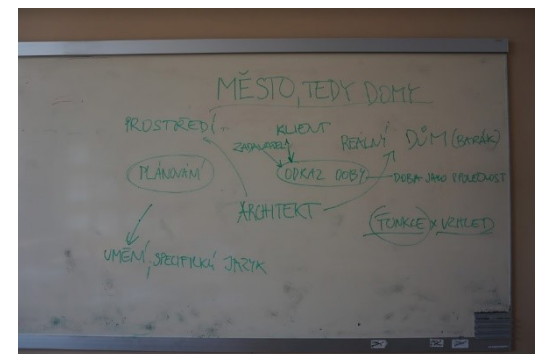 MĚSTO, TEDY DOMY
PROSTŘEDÍ
KLIENT
ZADAVATEL
REÁLNÍ DŮM (BARÁK)
PLÁNOVÁNÍ
ODKAZ DOBY — DOBA JAKO SPOLEČNOST
ARCHITEKT
FUNKCE x VZHLED
UMĚNÍ, SPECIFICKÝ JAZYK